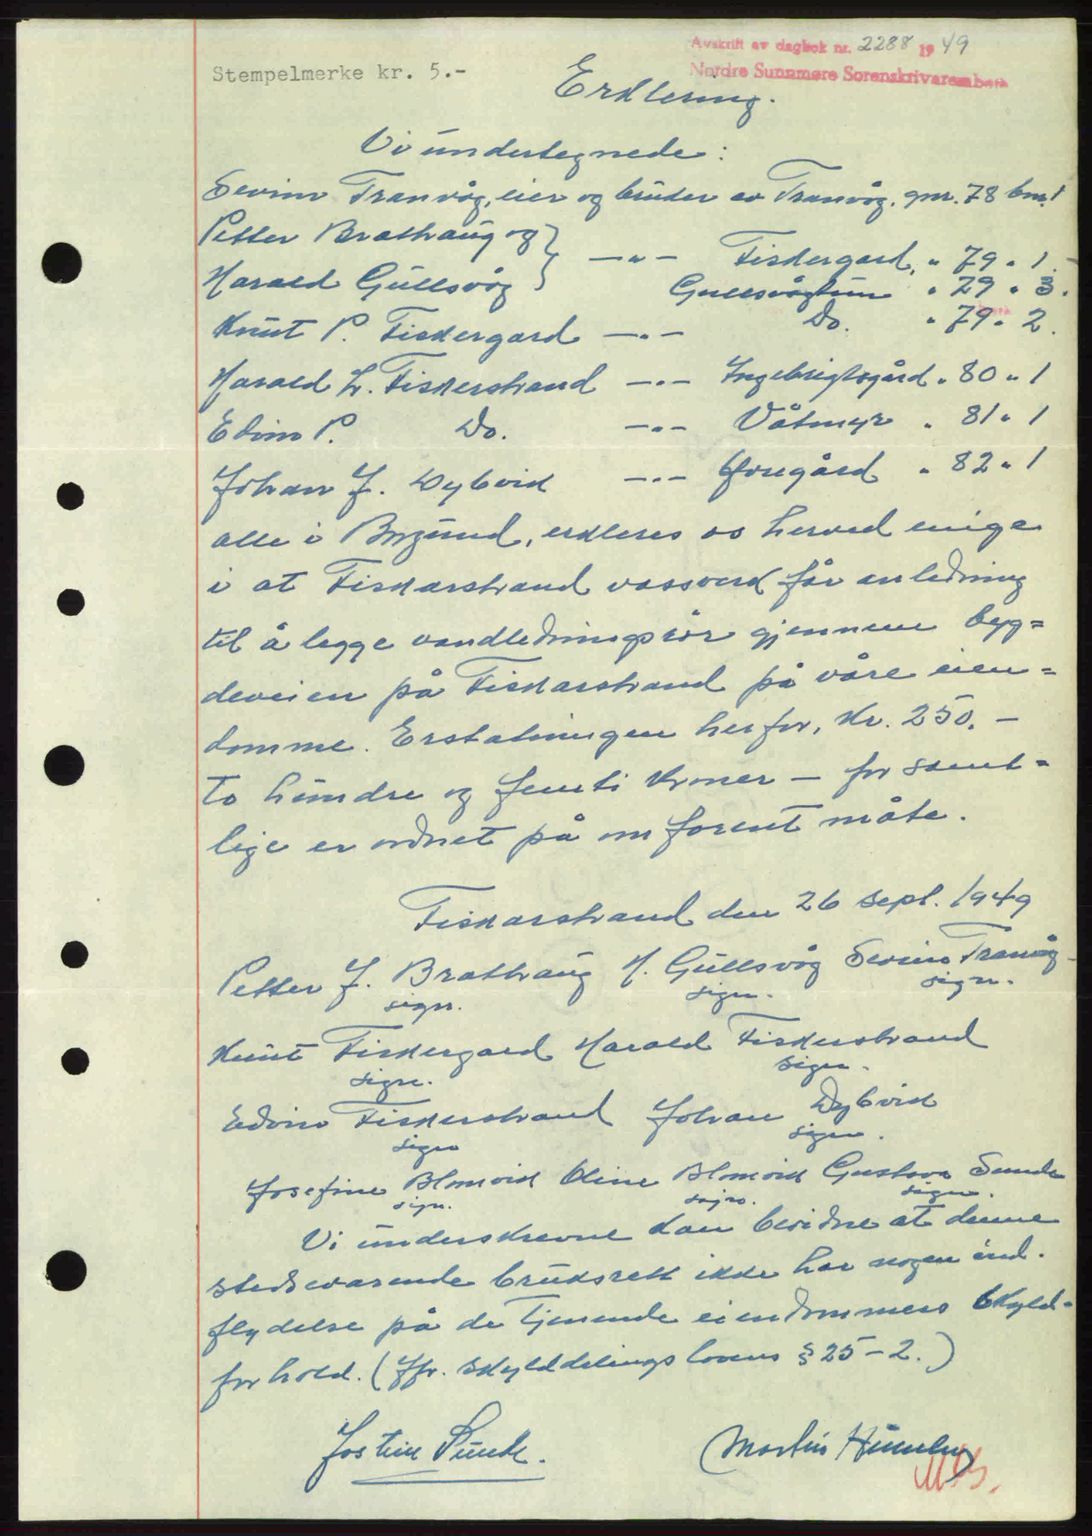 Avskrift av dagbok nr. 2288 1949
Nordre Sunnmøre Sorenskrivarembete
Stempelmerke kr. 5.-
Erklering.
Vi undertegnede:
Sevrin Tranvåg, eier og bruker av Tranvåg, gnr. 78 bnr. 1
Petter Brathaug og } —"— Fiskergard, " 79 " 1.
Harald Gullsvåg } Gullsvågtun " 79 " 3.
Knut P. Fiskergard —"— Do. " 79 " 2.
Harald L. Fiskerstrand —"— Ingebrigtsgård " 80 " 1
Edvin P. Do. —"— Våtmyr " 81 " 1
Johan J. Dybvik —"— Øvregård " 82 " 1
alle i Borgund, erkleres os herved enige
i at Fiskarstrand vassverk får anledning
til å legge vandledningsrør gjennem byg=
deveien på Fiskarstrand på våre eien=
domme. Erstatningen herfor, Kr. 250.-
To hundre og femti kroner - for samt=
lige er ordnet på omforent måte.
Fiskarstrand den 26 sept. 1949
Petter J. Brathaug H. Gullsvåg Sevrin Tranvåg
sign. sign. sign.
Knut Fiskergard Harald Fiskerstrand
sign. sign.
Edvin Fiskerstrand Johan Dybvik
sign sign.
Josefine Blomvik Oline Blomvik Gustava Sunde
sign. sign. sign.
Vi underskrevne kan bevidne at denne
stedsevarende bruksrett ikke har nogen ind=
flydelse på de tjenende eiendommers skyld=
forhold. (Jfr. skylddelingslovens § 25-2.)
Jostein Sunde. Martin